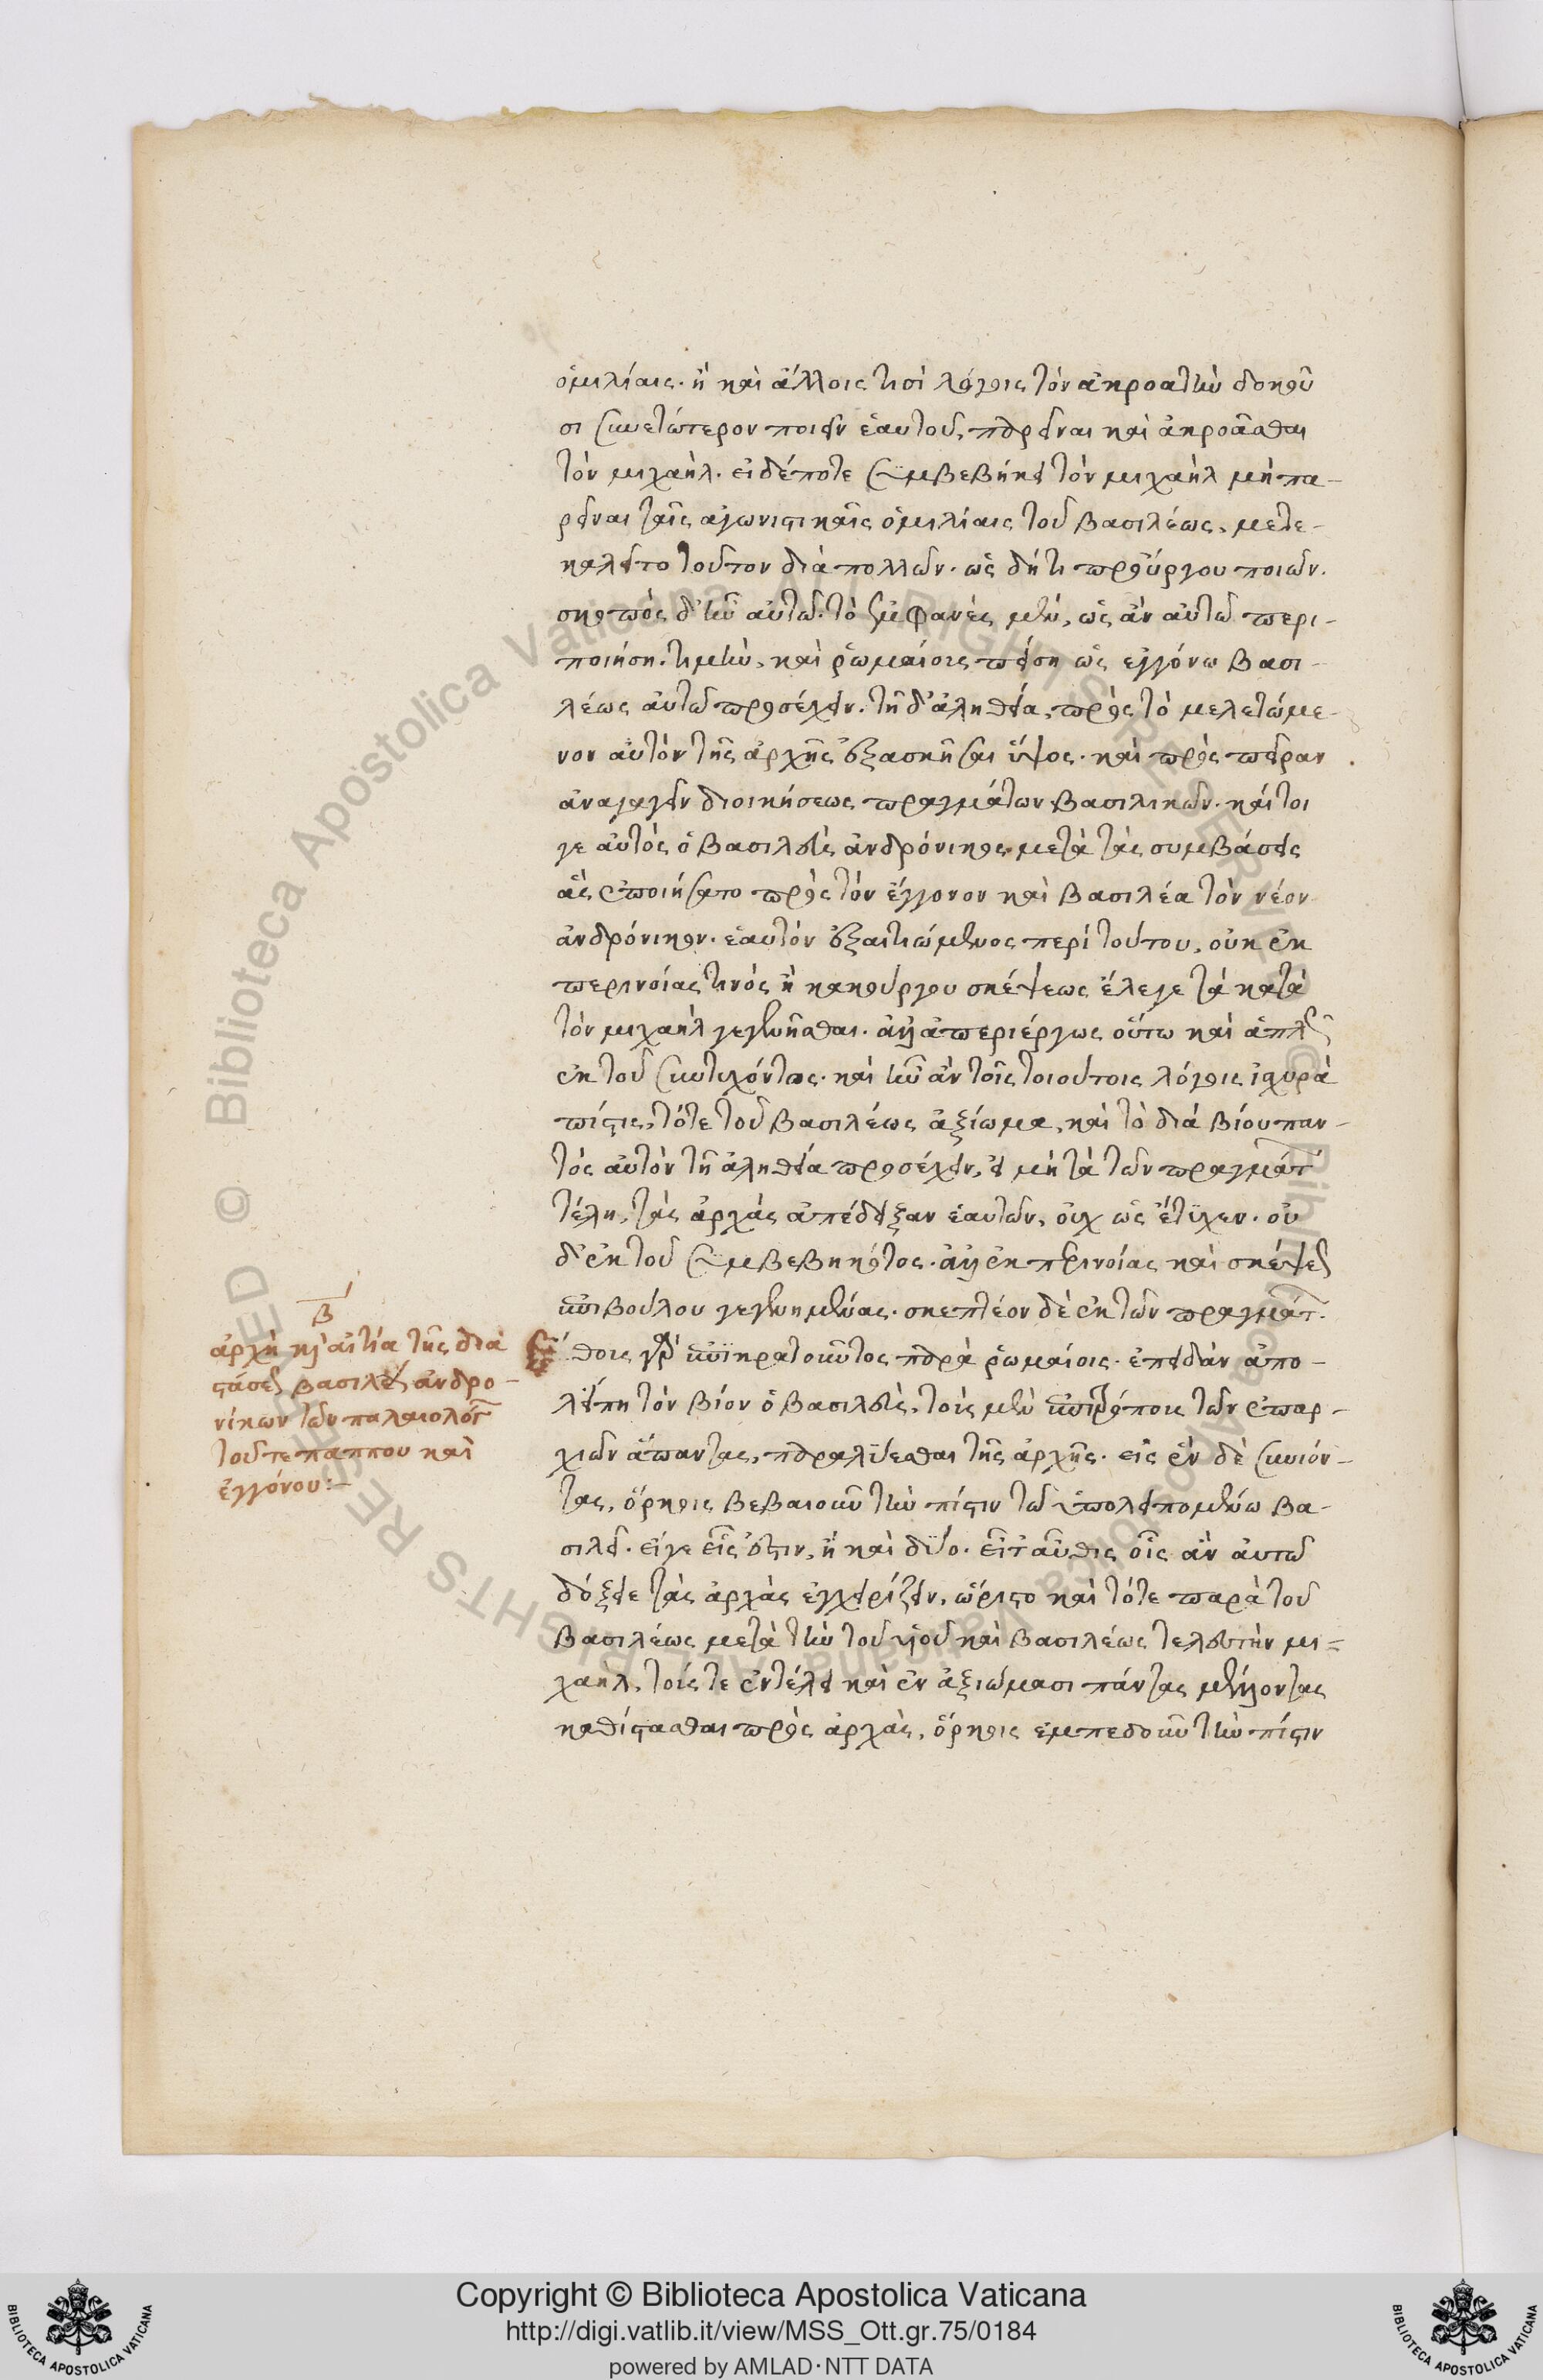 ὁμιλίαις· ἢ καὶ ἄλλοις τισὶ λόγοις τὸν ἀκροατὴν δοκοῦ
σι συνετώτερον ποιεῖν ἑαυτοῦ, παρεῖναι καὶ ἀκροᾶσθαι
τὸν μιχαήλ. εἰ δέποτε συμβεβήκει τὸν μιχαὴλ μὴ πα-
ρεῖναι ταῖς ἀγωνιστικαῖς ὁμιλίαις τοῦ βασιλέως, μετε-
καλεῖτο τοῦτον διὰ πολλῶν. ὡς δή τι προὔργου ποιῶν.
σκοπὸς δ' ἦν αὐτῷ. τὸ ἐμφανὲς μὲν, ὡς ἂν αὐτῷ περι-
ποιήσῃ τιμὴν, καὶ ῥωμαίοις πείσῃ ὡς ἐγγόνω βασι-
λέως αὐτῷ προσέχειν. τῇ δ' ἀληθεία, πρὸς τὸ μελετώμε-
νον αὐτὸν τῆς ἀρχῆς ἐξασκῆσαι ὕψος. καὶ πρὸς πεῖραν
ἀναγαγεῖν διοικήσεως πραγμάτων βασιλικῶν. καίτοι
γε αὐτὸς ὁ βασιλεὺς ἀνδρόνικος μετὰ τὰς συμβάσεις
ἃς ἐποιήσατο πρὸς τὸν ἔγγονον καὶ βασιλέα τὸν νέον
ἀνδρόνικον. ἑαυτὸν ἐξαιτιώμενος περὶ τούτου, οὐκ ἐκ
περινοίας τινὸς ἢ κακούργου σκέψεως ἔλεγε τὰ κατὰ
τὸν μιχαὴλ γεγενῆσθαι. ἀλλ' ἀπεριέργως οὕτω καὶ ἁπλῶς
ἐκ τοῦ συντυχόντος. καὶ ἦν ἂν τοῖς τοιούτοις λόγοις ἰσχυρὰ
πίστις, τότε τοῦ βασιλέως ἀξίωμα, καὶ τὸ διὰ βίου παν-
τὸς αὐτὸν τῇ ἀληθεία προσέχειν, εἰ μὴ τὰ τῶν πραγμάτων
τέλη, τὰς ἀρχὰς ἀπέδειξαν ἑαυτῶν, οὐχ ὡς ἔτυχεν. οὐ
δ' ἐκ τοῦ συμβεβηκότος. ἀλλ' ἐκ περινοίας καὶ σκέψεως
ἐπιβούλου γεγενημένας. σκεπτέον δὲ ἐκ τῶν πραγμάτων.
Ἔθους γὰρ ἐπικρατοῦντος παρὰ ῥωμαίοις. ἐπειδὰν ἀπο-
λείπη τὸν βίον ὁ βασιλεὺς, τοὺς μὲν ἐπιτρόπους τῶν ἐπαρ-
χιῶν ἅπαντας, παραλύεσθαι τῆς ἀρχῆς. εἰς ἓν δὲ συνιόν-
τας, ὅρκοις βεβαιοῦν τὴν πίστιν τῷ ὑπολειπομένω βα-
σιλεῖ. εἴγε εἷς ἐστιν, ἢ καὶ δύο. εἶτ' αὖθις οἷς ἂν αὐτῷ
δόξειε τὰς ἀρχὰς ἐγχειρίζειν, ὥριστο καὶ τότε παρὰ τοῦ
βασιλέως μετὰ τὴν τοῦ υἱοῦ καὶ βασιλέως τελευτὴν μι-
χαὴλ, τούς τε ἐν τέλει καὶ ἐν ἀξιώμασι πάντας μέλλοντας
καθίστασθαι πρὸς ἀρχὰς, ὅρκοις ἐμπεδοῦν τὴν πίστιν
β
ἀρχὴ κỳ αἰτία τῆς δια
στάσεως βασιλέων ἀνδρο-
νίκων τῶν παλαιολόγων
τοῦ τε παππου καὶ
ἐγγόνου:-
Copyright © Biblioteca Apostolica Vaticana
http://digi.vatlib.it/view/MSS_Ott.gr.75/0184
powered by AMLAD·NTT DATA
BIBLIOTECA APOSTOLICA VATICANA
BIBLIOTECA APOSTOLICA VATICANA